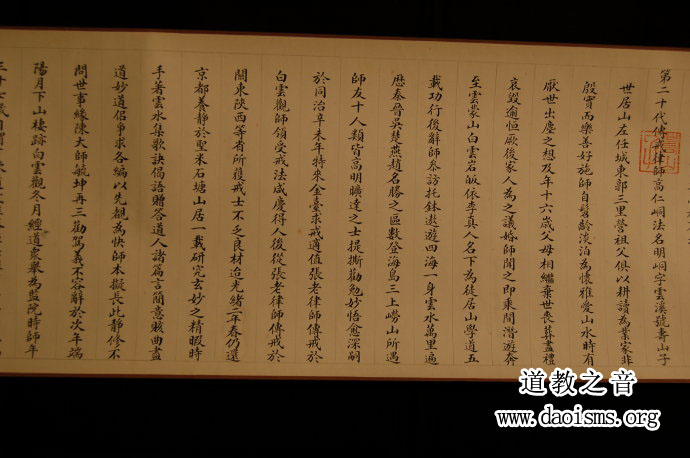 第二十代傳戒律師高仁峒法名明峒字雲溪號壽山子
世居山左任城東郭三里營祖父俱以耕讀為業家非
殷實而樂善好施師自髫齡淡泊為懷雅愛山水時有
厭世出塵之想及年十六歲父母相繼棄世喪葬盡禮
哀毀逾恒厥後家人為之議婚師聞之即乘間潛遊奔
至雲蒙山白雲岩皈依李真人名下為徒居山學道五
載功行後辭師叅訪托鉢遨遊四海一身雲水萬里遍
歷秦晉吳楚燕趙名勝之區數登海島三上嶗山所遇
師友十人類皆高明曠達之士提撕勸勉妙悟愈深嗣
於同治辛未年特來金臺求戒適值張老律師傳戒於
白雲觀師領受戒法咸慶得人後從張老律師傳戒於
關東陝西等省所獲戒士不乏良材迨光緒二年春仍還
京都養靜於聖米石塘山居一載研究玄妙之精暇時
手著雲水集歌訣偈語贈答道人諸篇言簡意賅曲盡
道妙道侶爭求各編以先覩為快師本擬長此靜修不
問世事緣陳大師毓坤再三勸駕義不容辭於次年端
陽月下山棲跡白雲觀冬月經道衆舉為監院時師年
三十七歲自
道教之音
www.daoisms.org